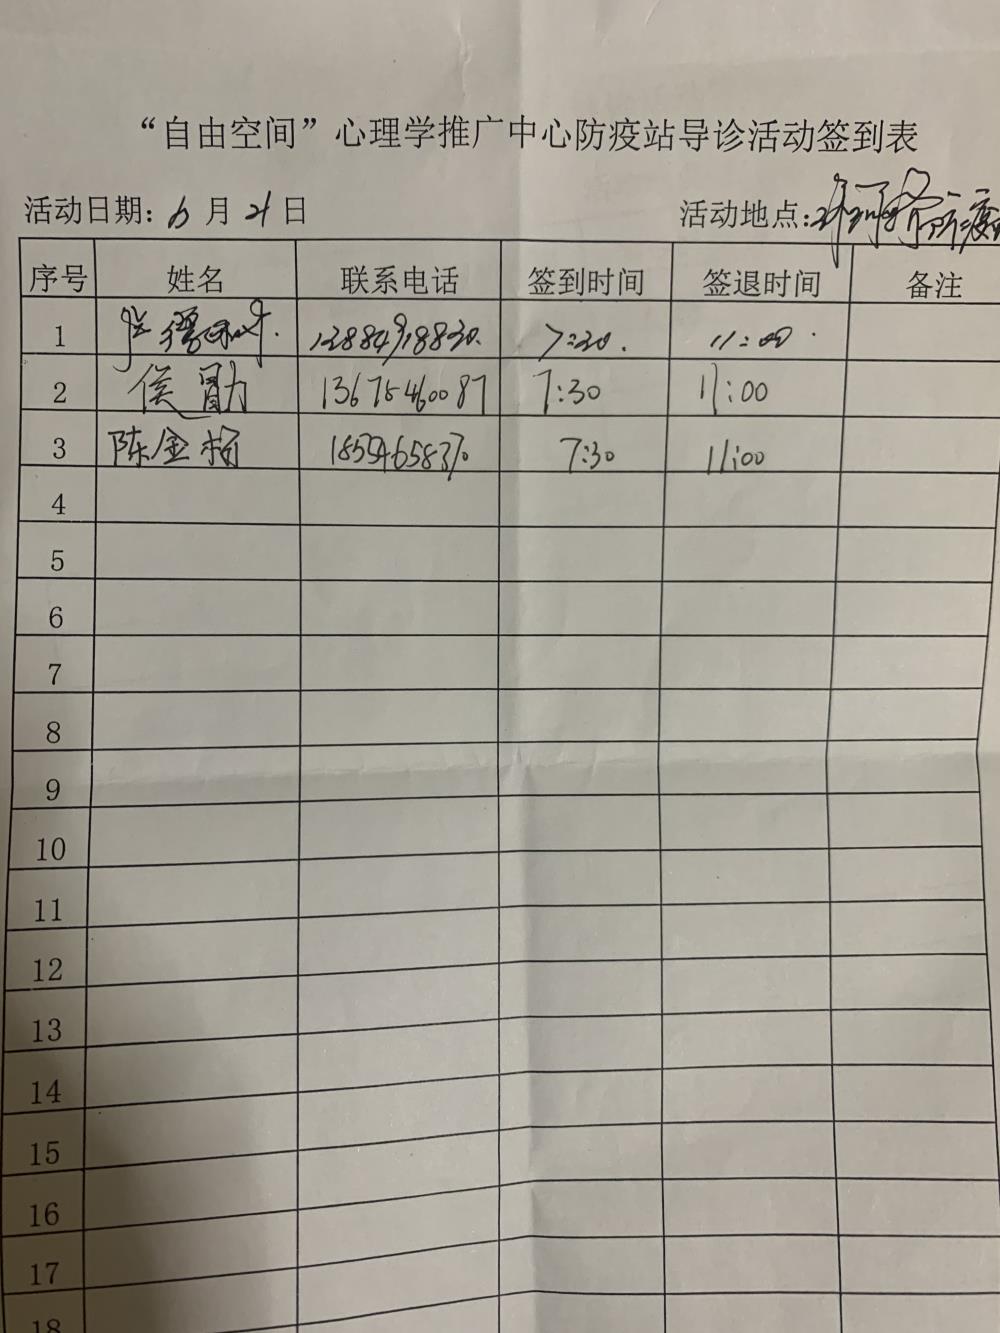 “自由空间”心理学推广中心防疫站导诊活动签到表
活动日期: 6 月 21 日 活动地点:
序号 姓名 联系电话 签到时间 签退时间 备注
1 7:30. 11:00.
2 侯勛 13675460087 7:30 11:00
3 陈金杨 7:30 11:00
4
5
6
7
8
9
10
11
12
13
14
15
16
17
18